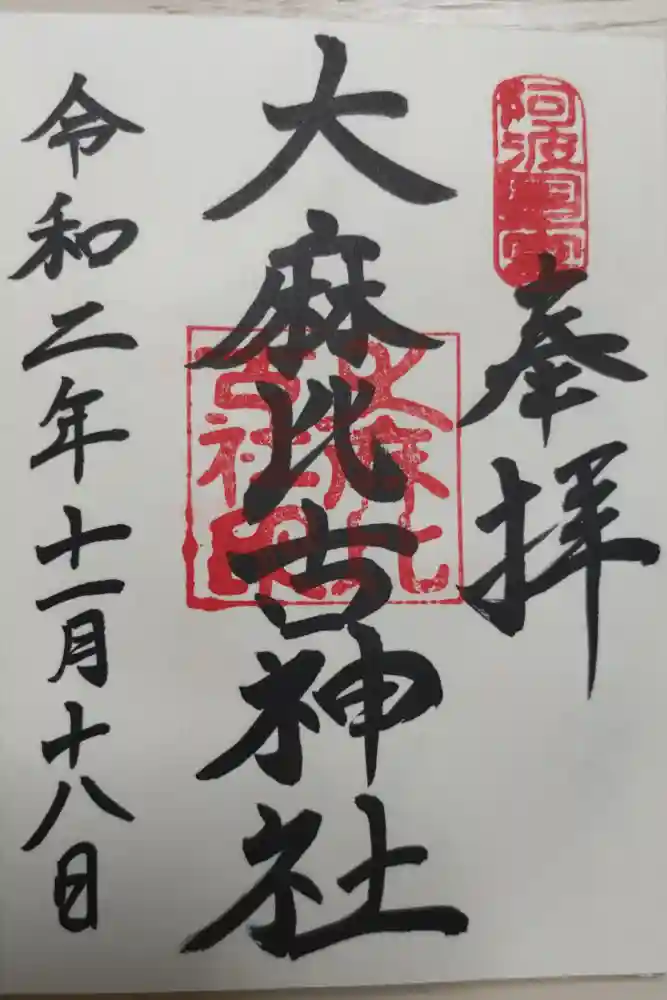 奉拝
阿波國一宮
大麻比古神社
大麻比古神社印
令和二年十一月十八日